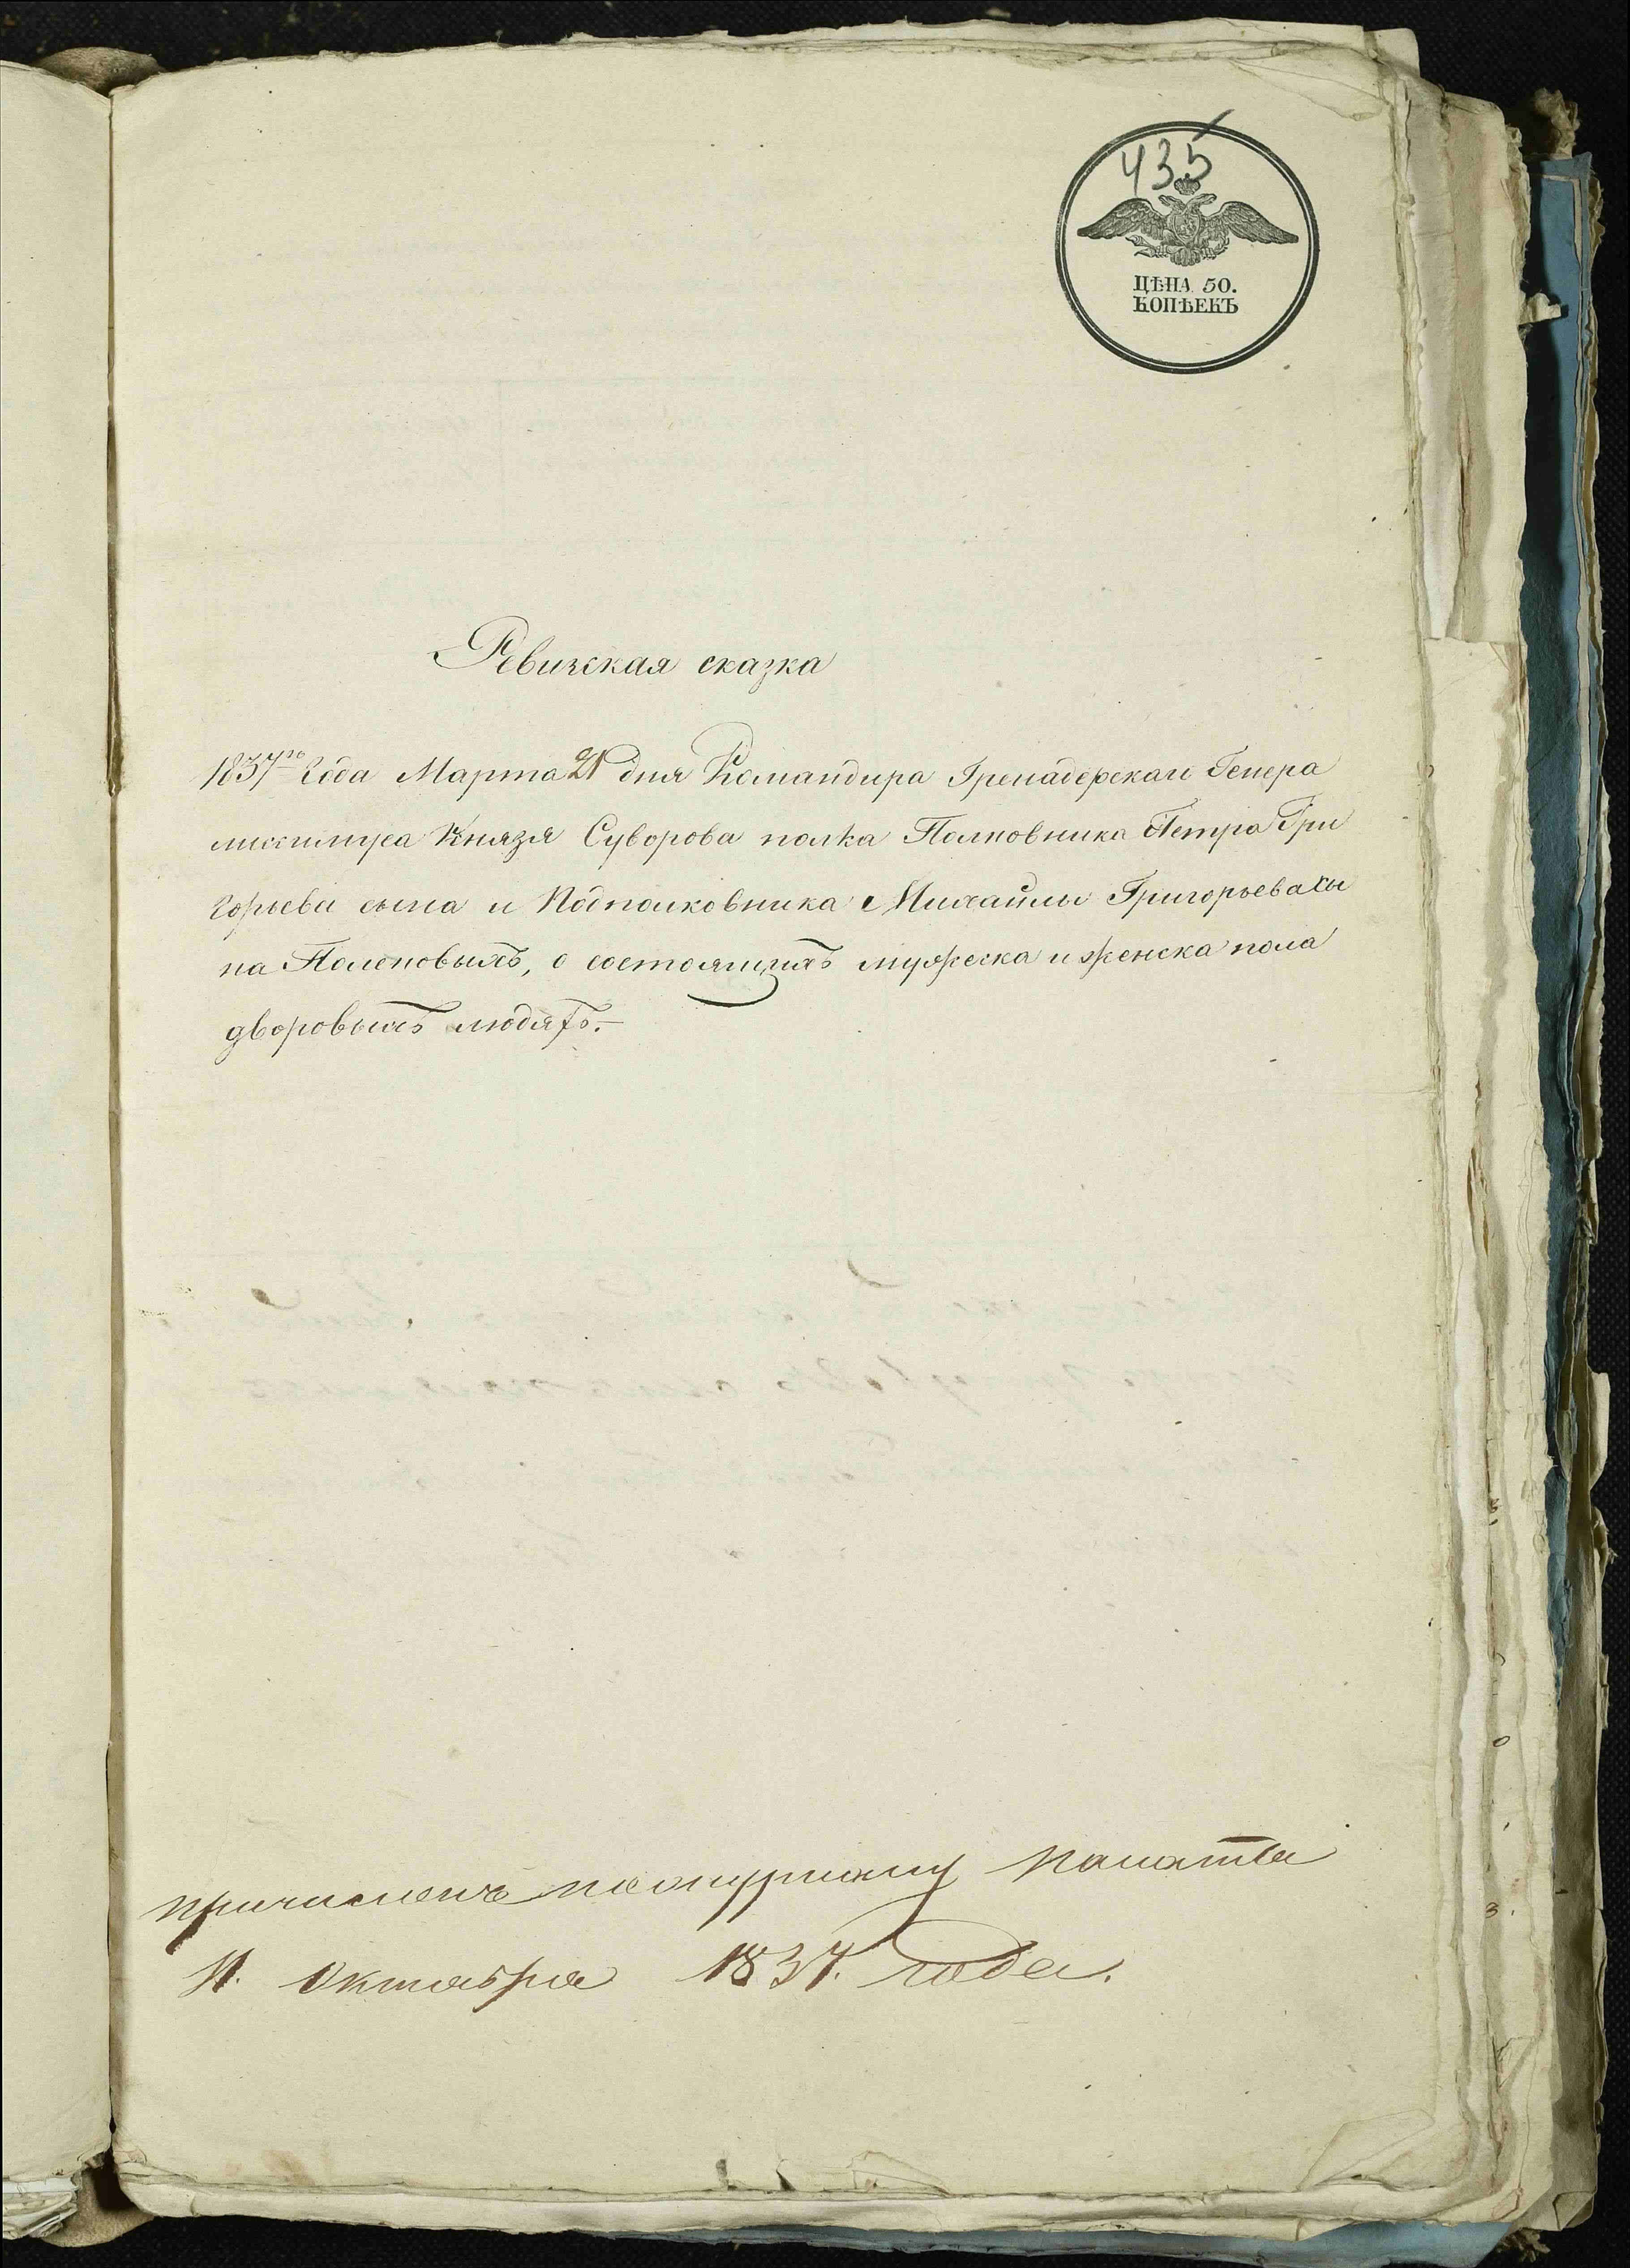 435
ЦѢНА 50.
КОПѢЕКЪ
Ревижская сказка
1837го Года Марта 21 дня Командира Гренадерскаго Генера
лиссимуса Князя Суворова полка Полковника Петра Гри
горьева сына и Подполковника Михайлы Григорьева сы
на Полоновыхъ, о состоящихъ мужеска и женска пола
дворовыхъ людяхъ.—
причислены по журналу палаты
11. Октября 1837. года.